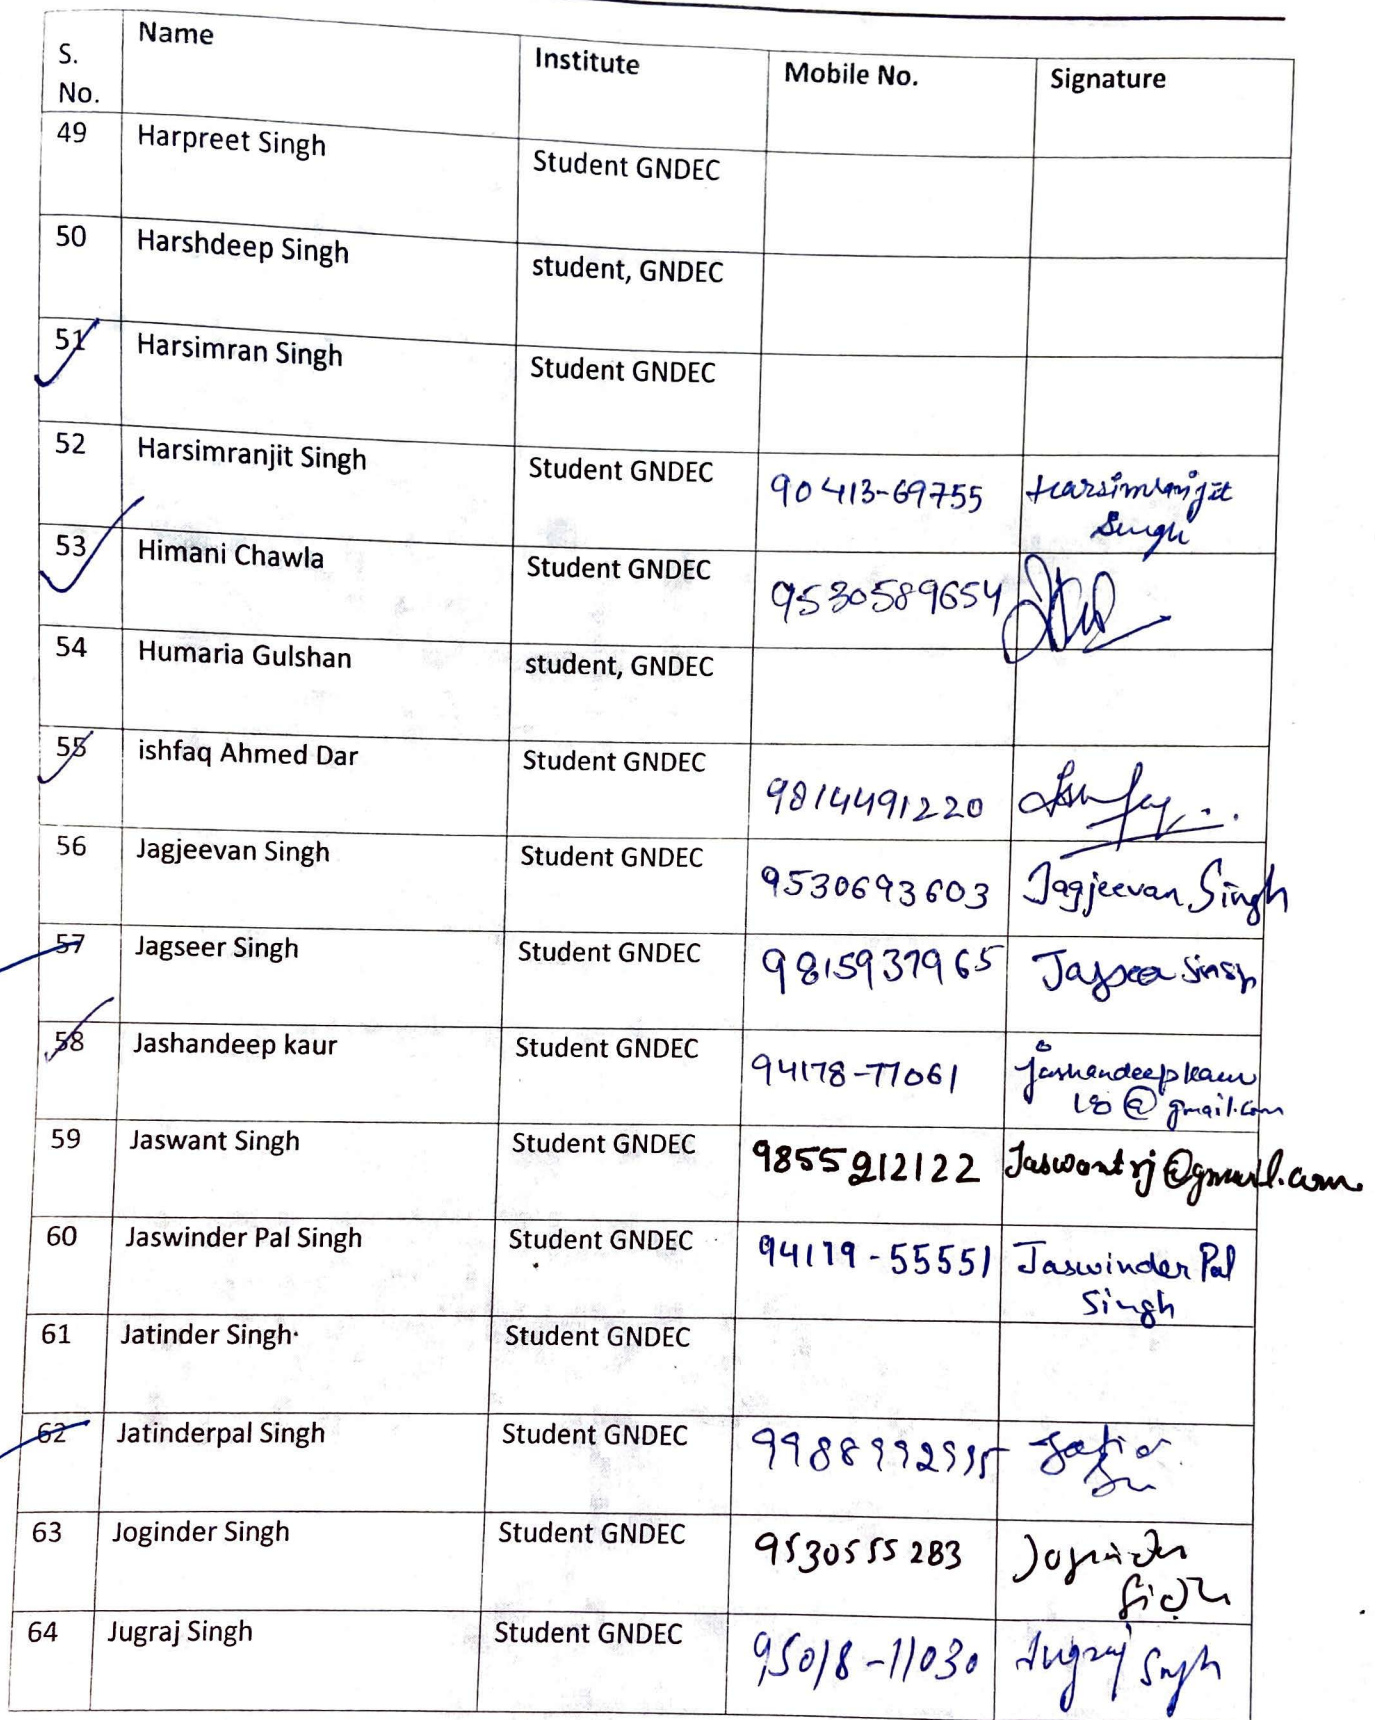 S. No. Name Institute Mobile No. Signature
49 Harpreet Singh Student GNDEC
50 Harshdeep Singh student, GNDEC
51 Harsimran Singh Student GNDEC
52 Harsimranjit Singh Student GNDEC 90413-69755 Harsimranjit Singh
53 Himani Chawla Student GNDEC 9530589654
54 Humaria Gulshan student, GNDEC
55 ishfaq Ahmed Dar Student GNDEC 9814491220
56 Jagjeevan Singh Student GNDEC 9530693603 Jagjeevan Singh
57 Jagseer Singh Student GNDEC 9815937965 Jagseer Singh
58 Jashandeep kaur Student GNDEC 94178-77061 jashandeepkaur 18@gmail.com
59 Jaswant Singh Student GNDEC 9855212122 Jaswantrj@gmail.com
60 Jaswinder Pal Singh Student GNDEC 94179-55551 Jaswinder Pal Singh
61 Jatinder Singh Student GNDEC
62 Jatinderpal Singh Student GNDEC
63 Joginder Singh Student GNDEC 9530555283 Joginder Singh
64 Jugraj Singh Student GNDEC 95018-11030 Jugraj Singh